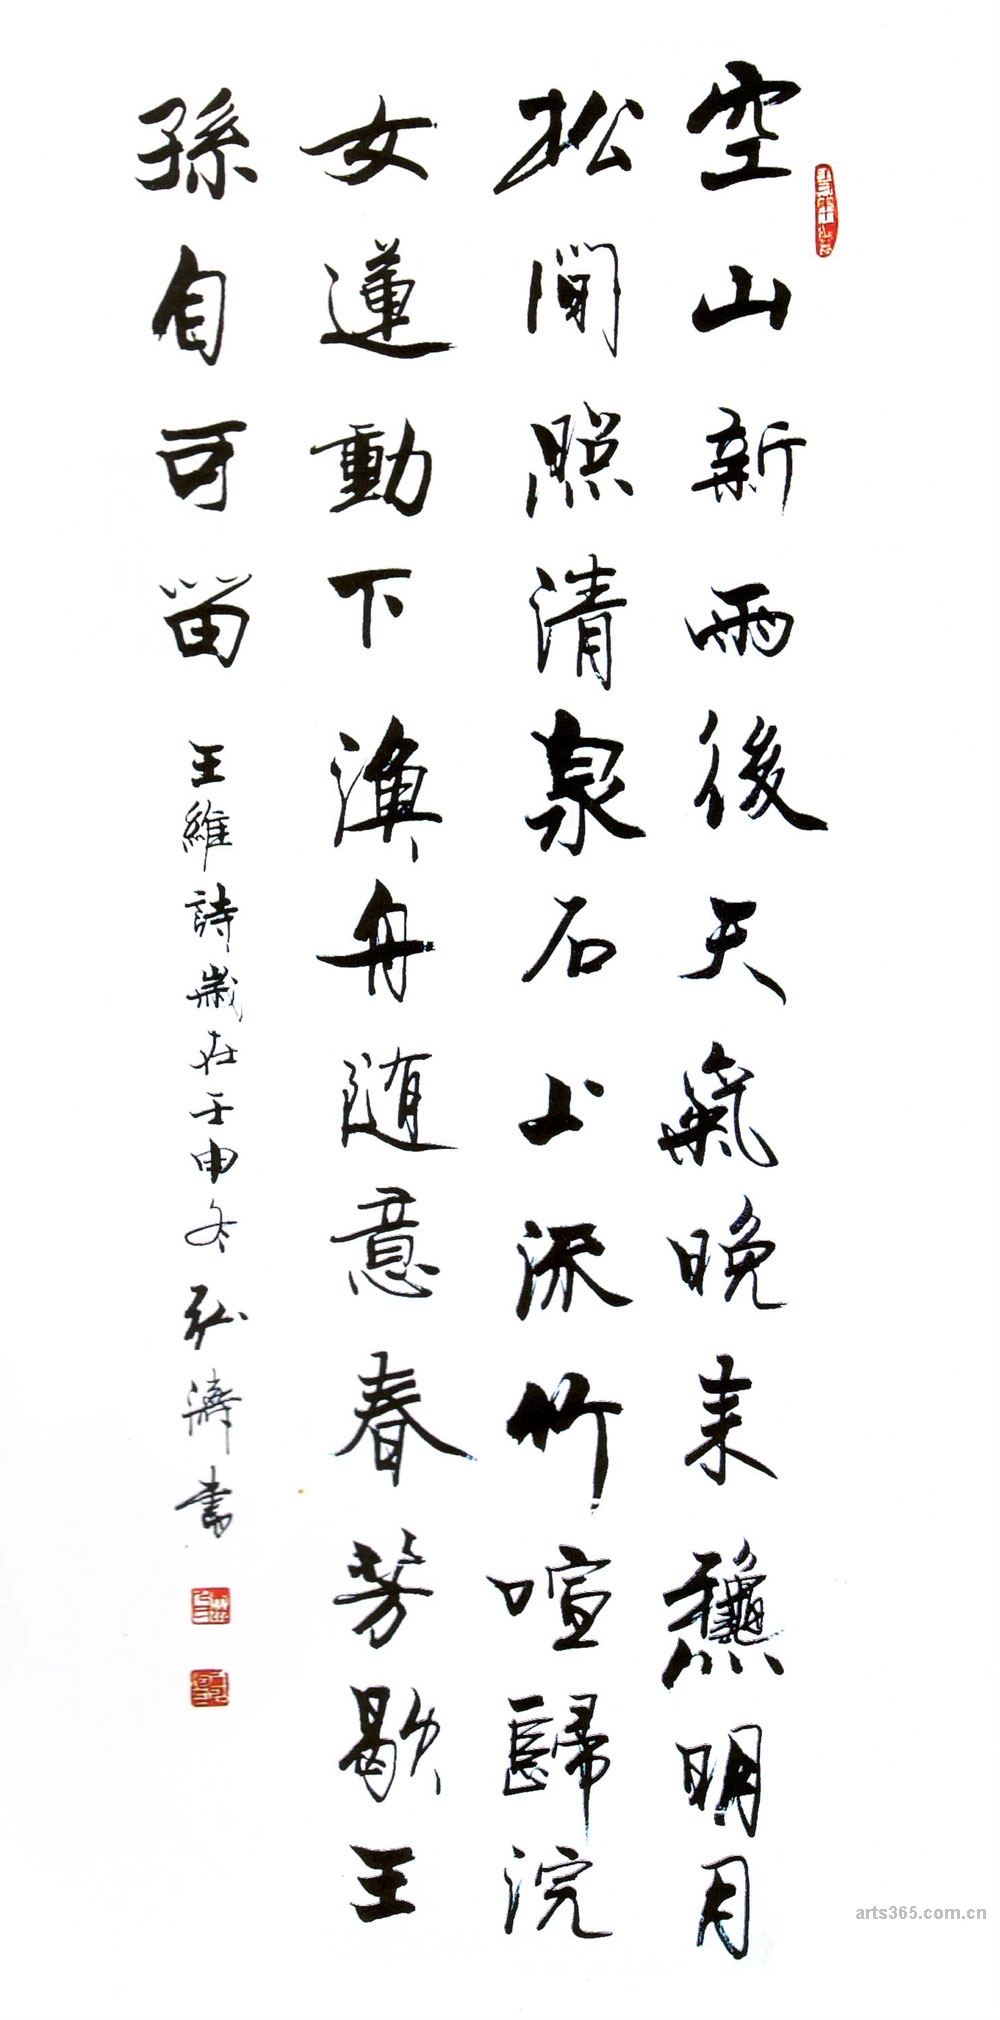 空山新雨後天氣晚来龝明月
松間照清泉石上流竹喧歸浣
女蓮動下漁舟随意春芳歇王
孫自可留
王維詩歲在壬申冬弘濤書
arts365.com.cn